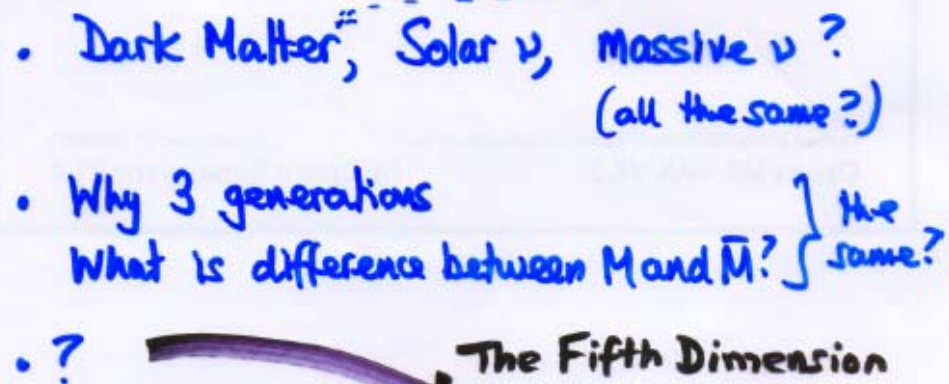 • Dark Matter, Solar ν, massive ν?
(all the same?)
• Why 3 generations
What is difference between M and M̄? } the same?
• ? The Fifth Dimension